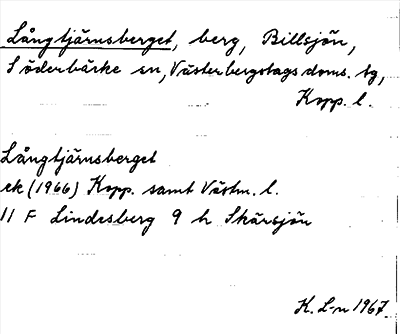 Långtjärnsberget, berg, Billsjön,
Söderbärke sn, Västerbergslags doms. tg,
Kopp. l.
Långtjärnsberget
ek (1966) Kopp. samt Västm. l.
11 F Lindesberg 9 h Skärsjön
K. L-n 1967